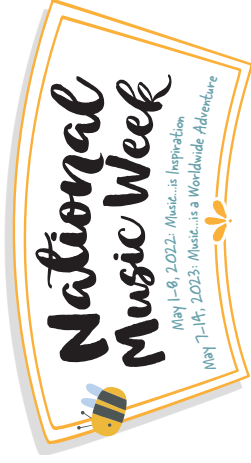 National
Music Week
May 1–8, 2022: Music...is Inspiration
May 7–14, 2023: Music...is a Worldwide Adventure